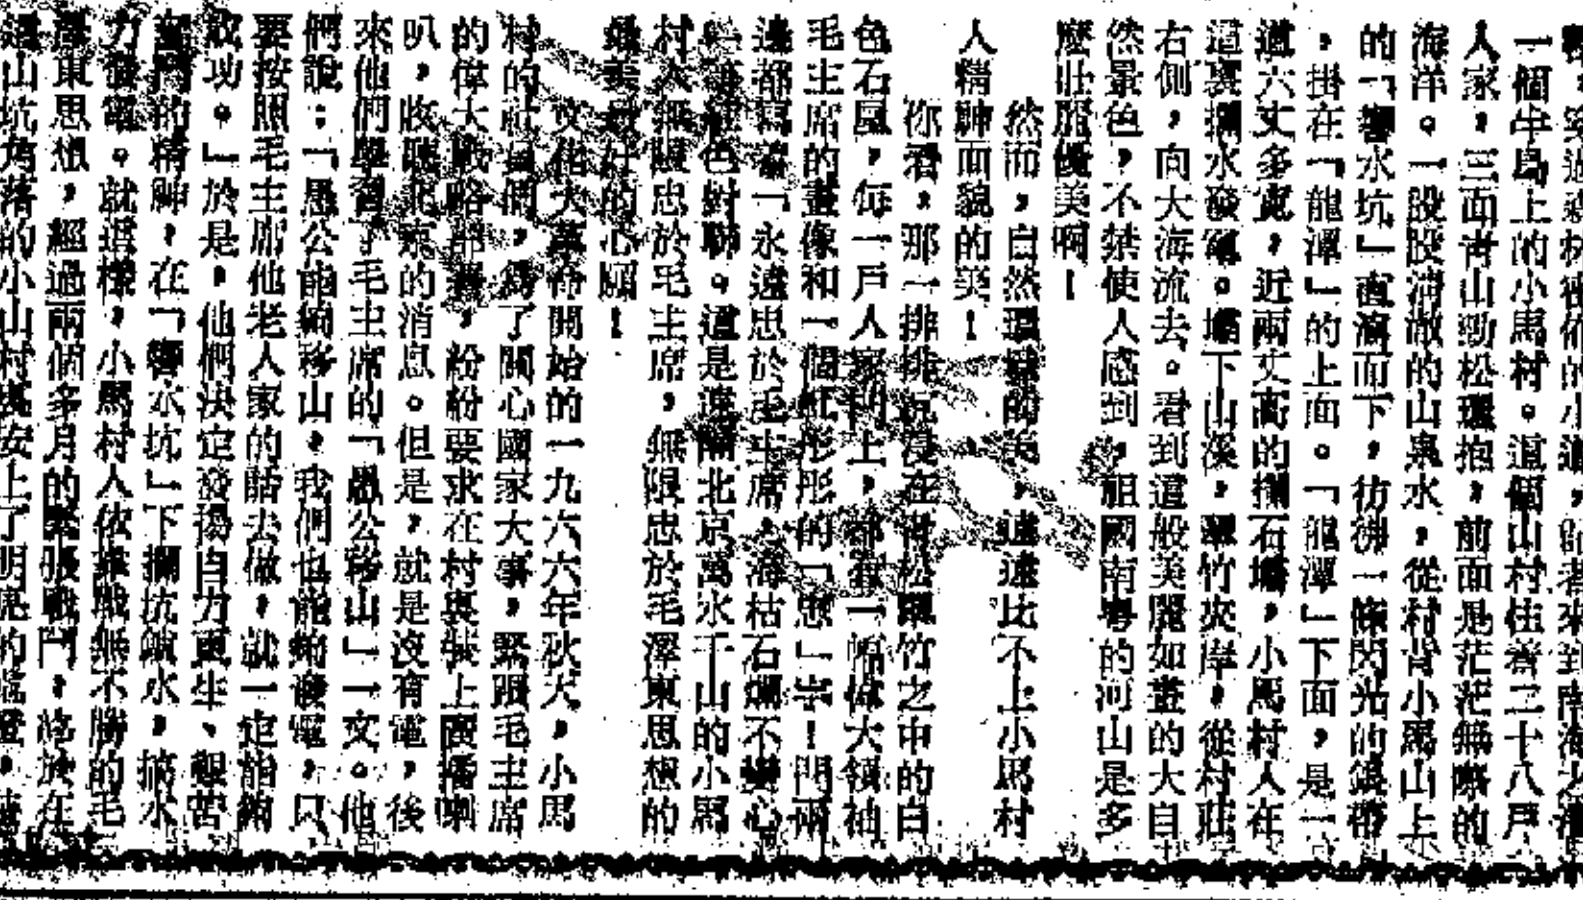 一個半島上的小馬村。這個山村住着二十八戶
人家，三面青山勁松環抱，前面是茫茫無際的
海洋。一股股清澈的山泉水，從村背小馬山上
的「響水坑」直瀉而下，彷彿一條閃光的銀帶
，掛在「龍潭」的上面。「龍潭」下面，是一
道六丈多寬，近兩丈高的攔石壩，小馬村人在
這裏攔水發電。壩下山溪，翠竹夾岸，從村莊
右側，向大海流去。看到這般美麗如畫的大自
然景色，不禁使人感到，祖國南粵的河山是多
麼壯麗優美啊！
然而，自然環境的美，遠遠比不上小馬村
人精神面貌的美！
你看，那一排排沉浸在青松翠竹之中的白
色石屋，每一戶人家門上，都有一幅偉大領袖
毛主席的畫像和一個紅彤彤的「忠」字！門兩
邊都寫着「永遠忠於毛主席，海枯石爛不變心
」紅色對聯。這是遠隔北京萬水千山的小馬
村人無限忠於毛主席，無限忠於毛澤東思想的
最美最好的心願！
文化大革命開始的一九六六年秋天，小馬
村的社員們，爲了關心國家大事，緊跟毛主席
的偉大戰略部署，紛紛要求在村裏裝上廣播喇
叭，收聽北京的消息。但是，就是沒有電，後
來他們學習了毛主席的「愚公移山」一文。他
們說：「愚公能夠移山，我們也能夠發電，只
要按照毛主席他老人家的話去做，就一定能夠
成功。」於是，他們決定發揚自力更生、艱苦
奮鬥的精神，在「響水坑」下攔坑鎖水，搞水
力發電。就這樣，小馬村人依靠戰無不勝的毛
澤東思想，經過兩個多月的緊張戰鬥，終於在
這山坑角落的小山村裏安上了明亮的電燈，